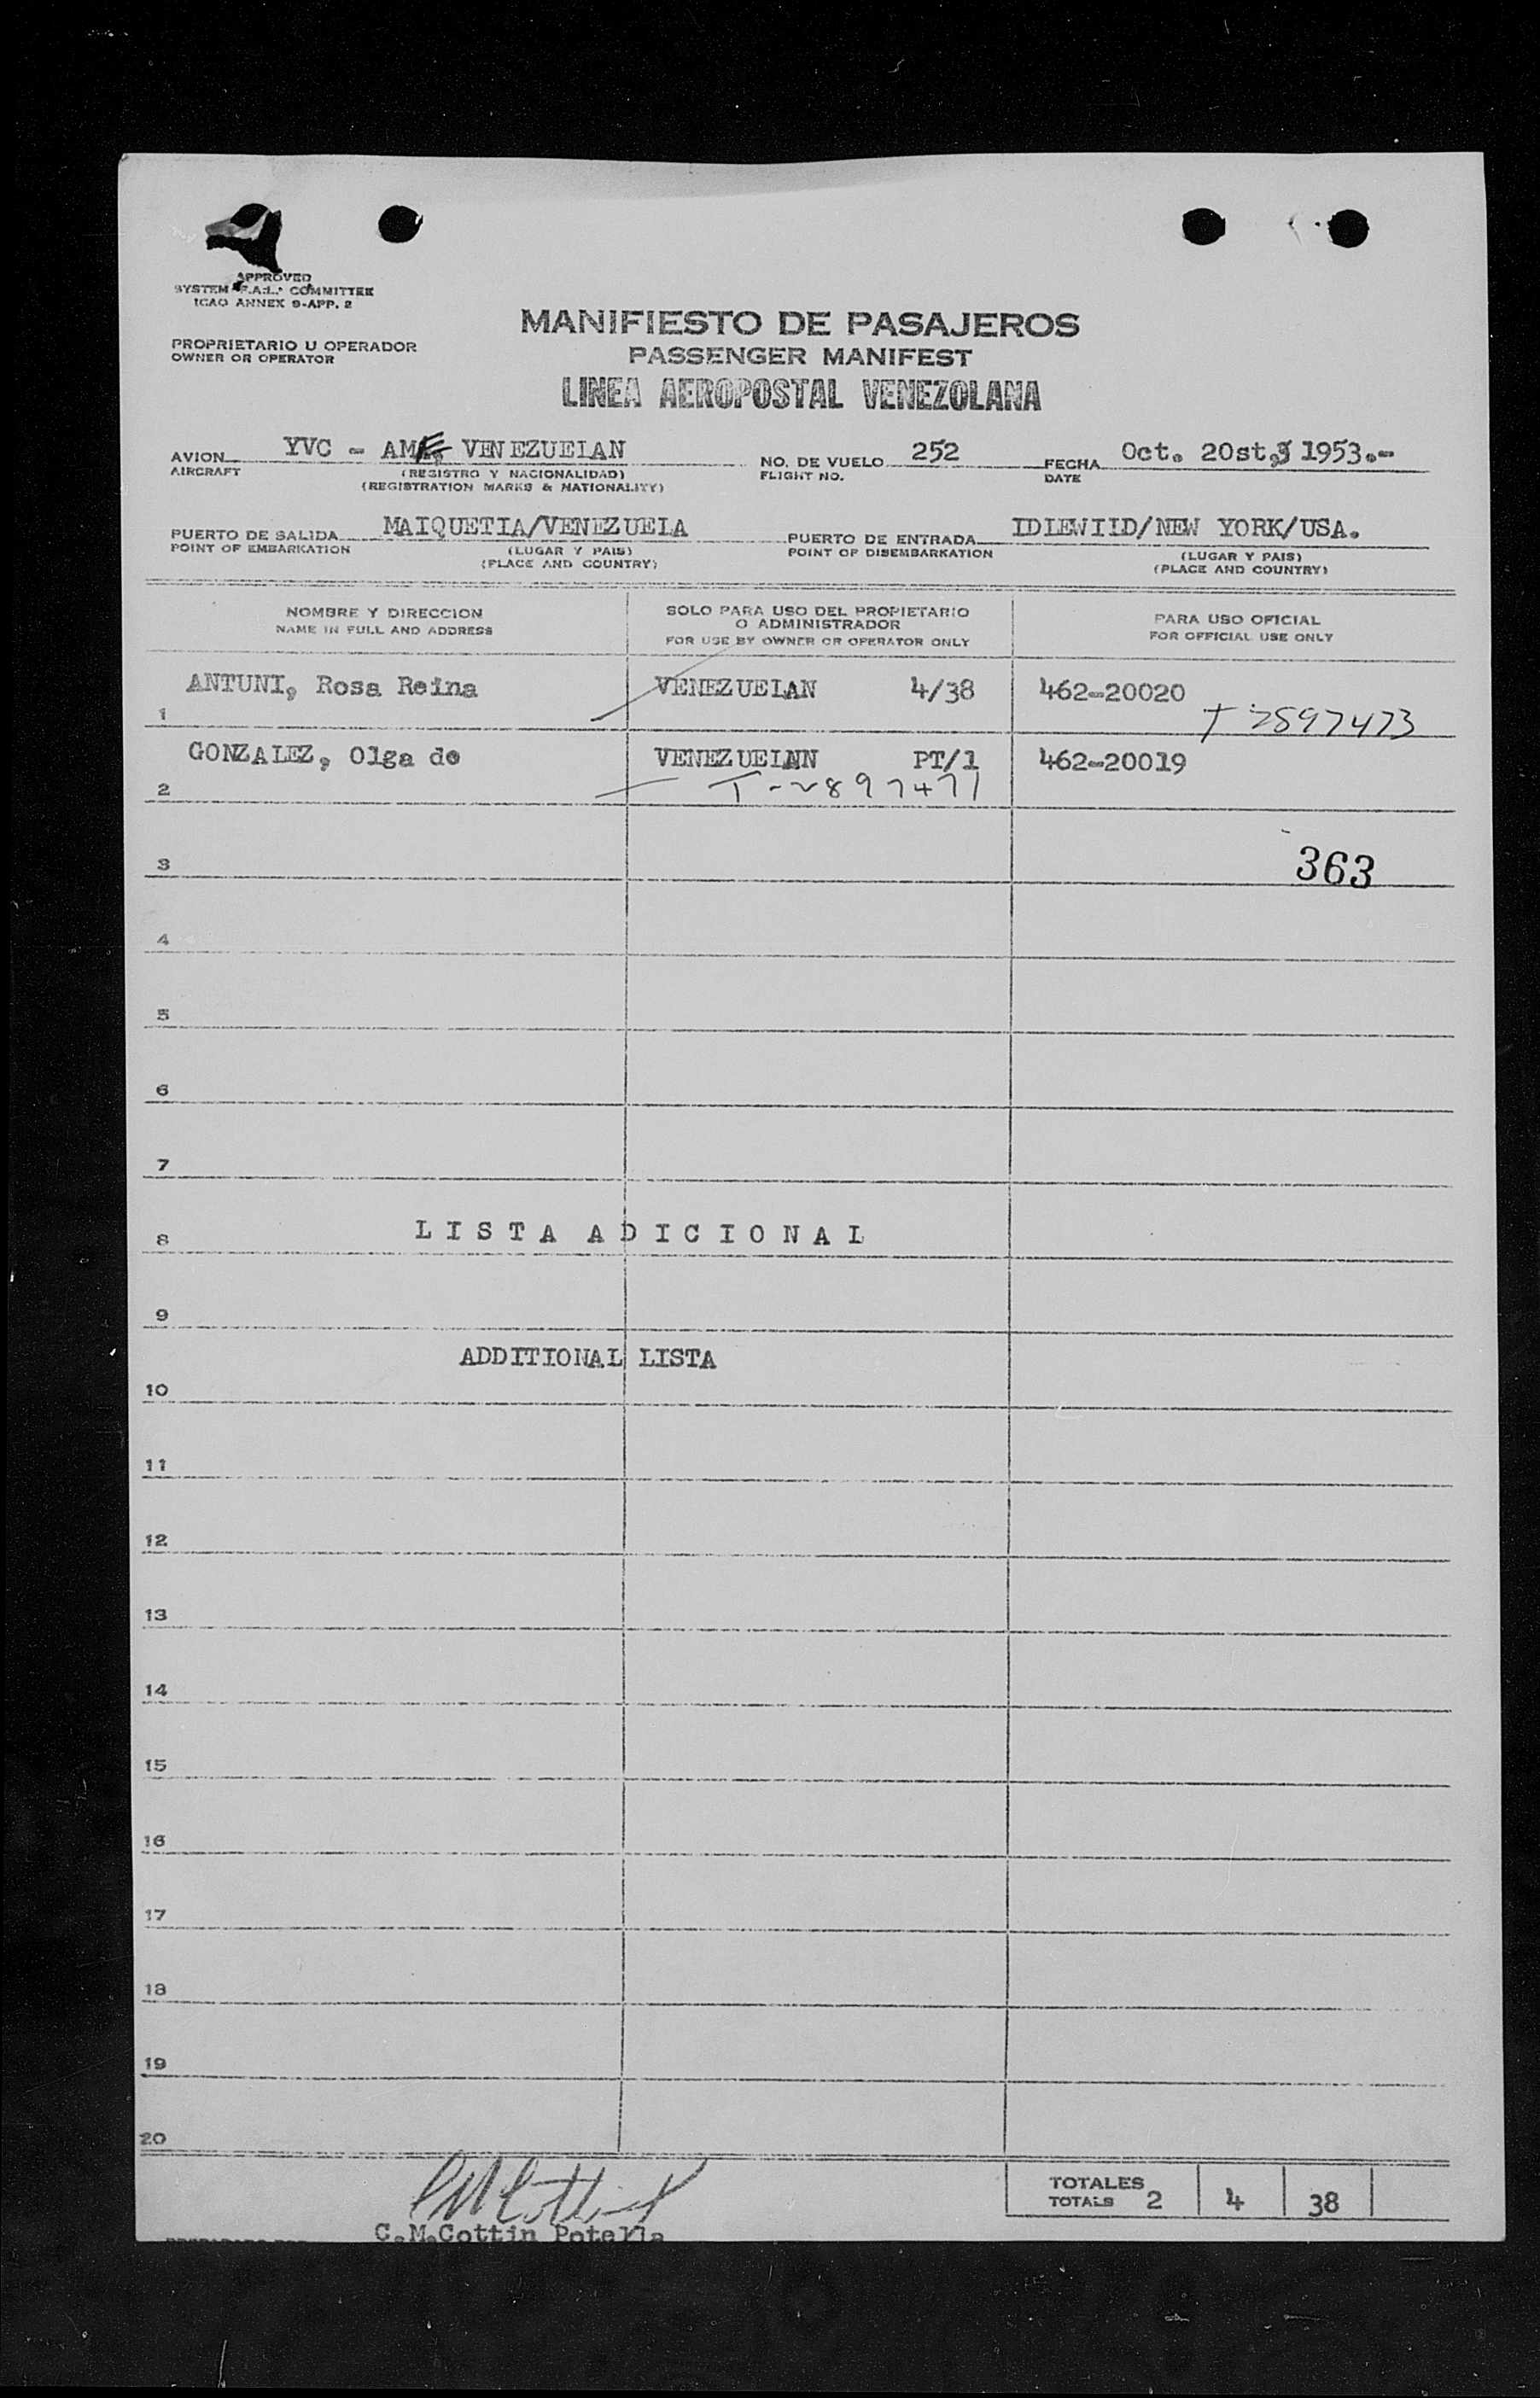 APPROVED
SYSTEM F.A.L. COMMITTEE
ICAO ANNEX 9-APP. 2
PROPRIETARIO U OPERADOR
OWNER OR OPERATOR
MANIFIESTO DE PASAJEROS
PASSENGER MANIFEST
LINEA AEROPOSTAL VENEZOLANA
AVION YVC - AME, VENEZUELAN NO. DE VUELO 252 FECHA Oct. 20st, 1953.-
AIRCRAFT (REGISTRO Y NACIONALIDAD) FLIGHT NO. DATE
(REGISTRATION MARKS & NATIONALITY)
PUERTO DE SALIDA MAIQUETIA/VENEZUELA PUERTO DE ENTRADA IDLEWILD/NEW YORK/USA.
POINT OF EMBARKATION (LUGAR Y PAIS) POINT OF DISEMBARKATION (LUGAR Y PAIS)
(PLACE AND COUNTRY) (PLACE AND COUNTRY)
NOMBRE Y DIRECCION SOLO PARA USO DEL PROPIETARIO O ADMINISTRADOR PARA USO OFICIAL
NAME IN FULL AND ADDRESS FOR USE BY OWNER OR OPERATOR ONLY FOR OFFICIAL USE ONLY
ANTUNI, Rosa Reina VENEZUELAN 4/38 462-20020
1 T 2897473
GONZALEZ, Olga de VENEZUELAN PT/1 462-20019
2 T-2897471
3 363
4
5
6
7
8 LISTA ADICIONAL
9
ADDITIONAL LISTA
10
11
12
13
14
15
16
17
18
19
20
TOTALES
TOTALS 2 4 38
C.M.Cottin Potella